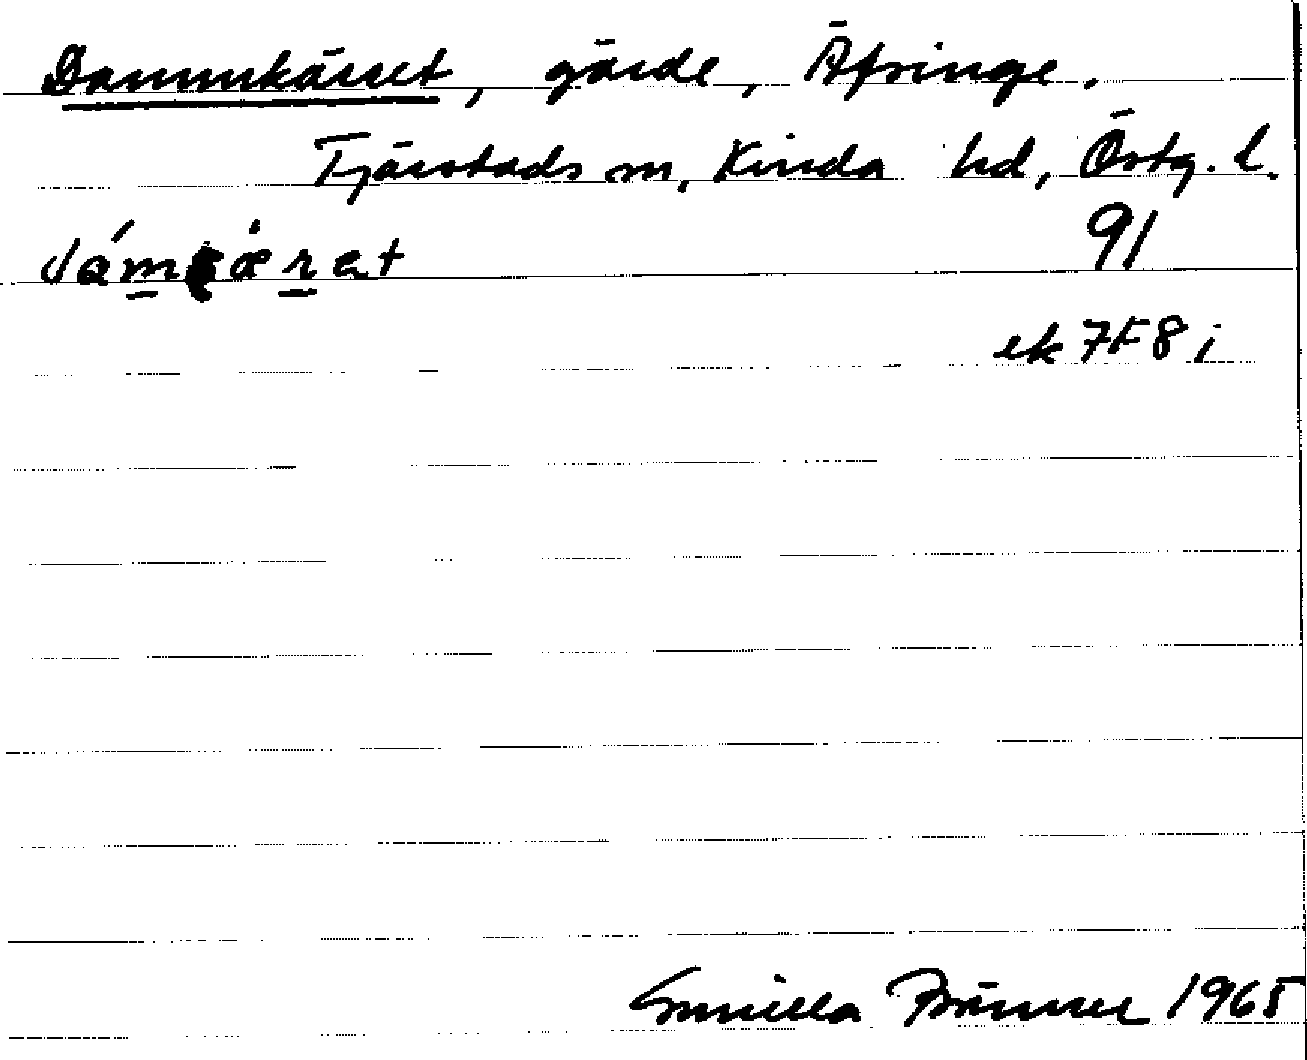 Dammkärret, gärde, Äfringe.
Tjärstads sn, Kinda hd, Östg. l.
dám çæ̀ret
91
ek 7F8i
Gunilla Brännel 1965